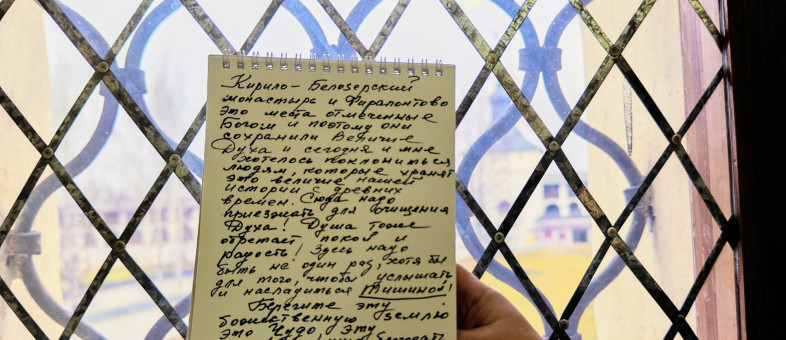 Кирило-Белозерский
монастырь и Фирапонтово
это места отмеченные
Богом и поэтому они
сохранили Величие
Духа и сегодня и мне
хотелось поклониться
людям, которые хранят
это величие нашей
истории с древних
времен. Сюда надо
приезжать для очищения
Духа! Душа тоже
обретает покой и
радость! Здесь надо
быть не один раз, хотя бы
для того, чтобы услышать
и насладиться тишиной!
Берегите эту
божественную землю
это Чудо, эту